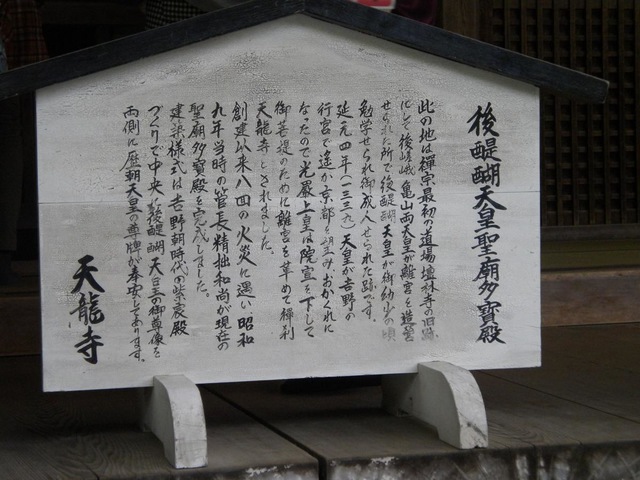 後醍醐天皇聖廟多寳殿
此の地は禪宗最初の道場壇林寺の旧跡
にして後嵯峨亀山両天皇が離宮を造営
せられた所で後醍醐天皇が御幼少の頃
勉学せられ御成人せられた跡です。
延元四年(一三三九)天皇が吉野の
行宮で遙か京都を望み、おかくれに
なったので光厳上皇は院宣を下して
御菩提のために離宮を革めて禅刹
天龍寺とされました。
創建以来八回の火災に遇い昭和
九年当時の管長精拙和尚が現在の
聖廟多寳殿を完成しました。
建築様式は吉野朝時代の紫宸殿
づくりで中央に後醍醐天皇の御尊像を
両側に歴朝天皇の尊牌が奉安してあります。
天龍寺